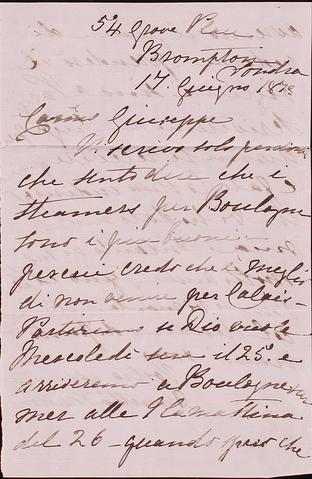 54 Grove Place
Brompton
Londra
17 Giugno 187
Giuseppe
Vi scrivo solo per dirvi
che sento dire che i
steamers per Boulogne
sono i più buoni
percui credo che è meglio
di non venire per Calais-
Partiremo se Dio vuole
Mercoledì sera il 25º. e
arriveremo a Boulogne sur
mer alle 7 la mattina
del 26 - quando spero che